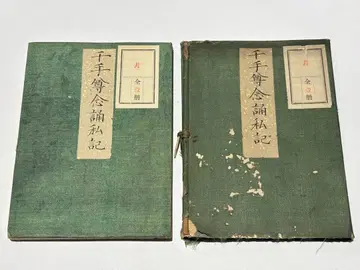 千手尊念誦私記
全 冊
千手尊念誦私記
全 冊